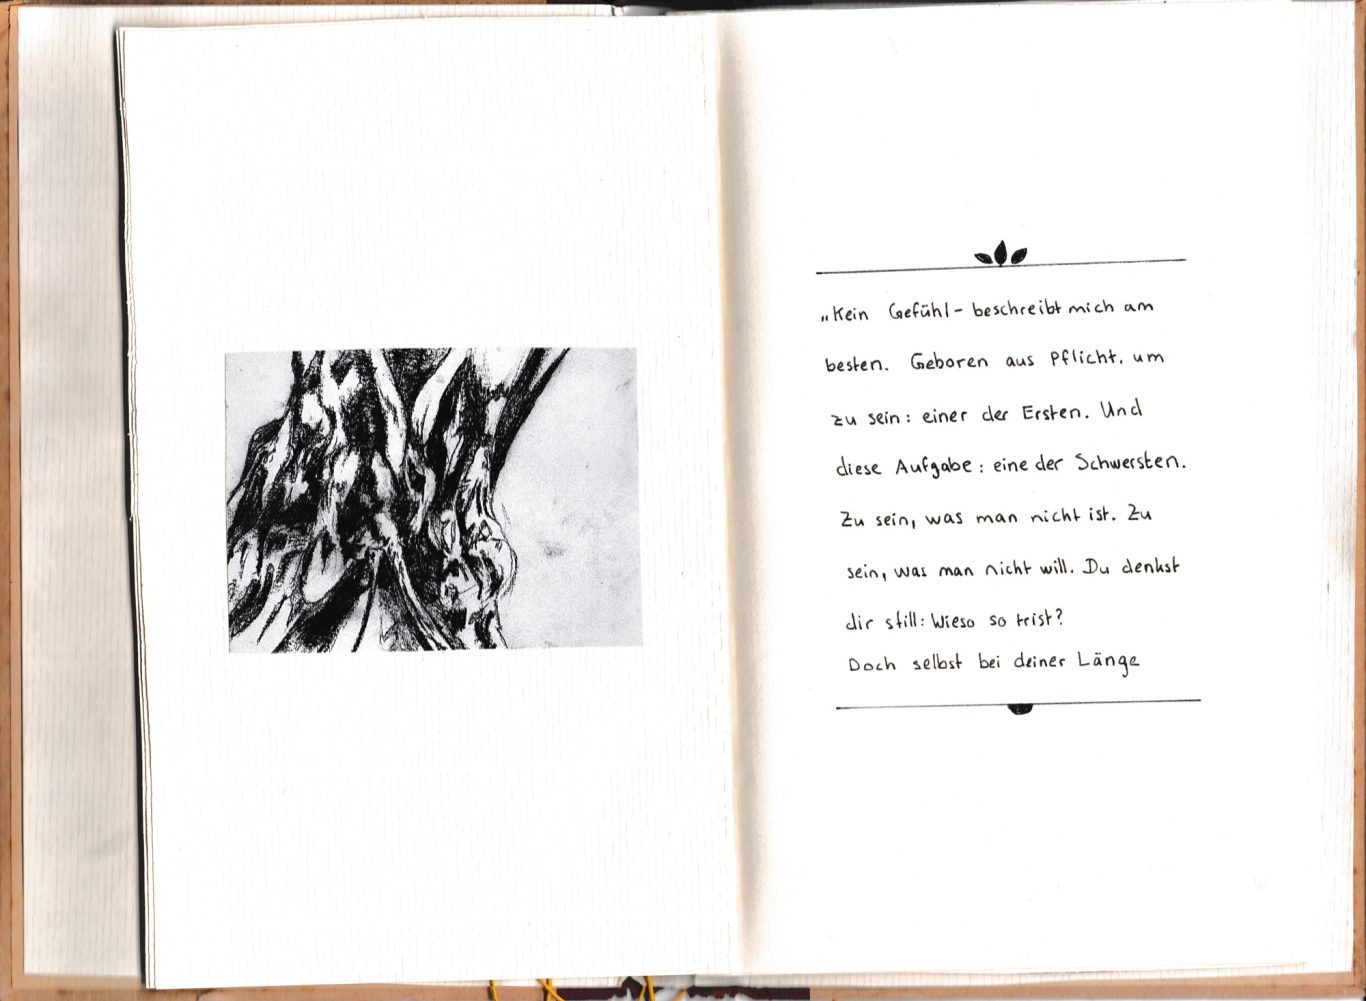 „Kein Gefühl – beschreibt mich am
besten. Geboren aus Pflicht, um
zu sein: einer der Ersten. Und
diese Aufgabe: eine der Schwersten.
Zu sein, was man nicht ist. Zu
sein, was man nicht will. Du denkst
dir still: Wieso so trist?
Doch selbst bei deiner Länge